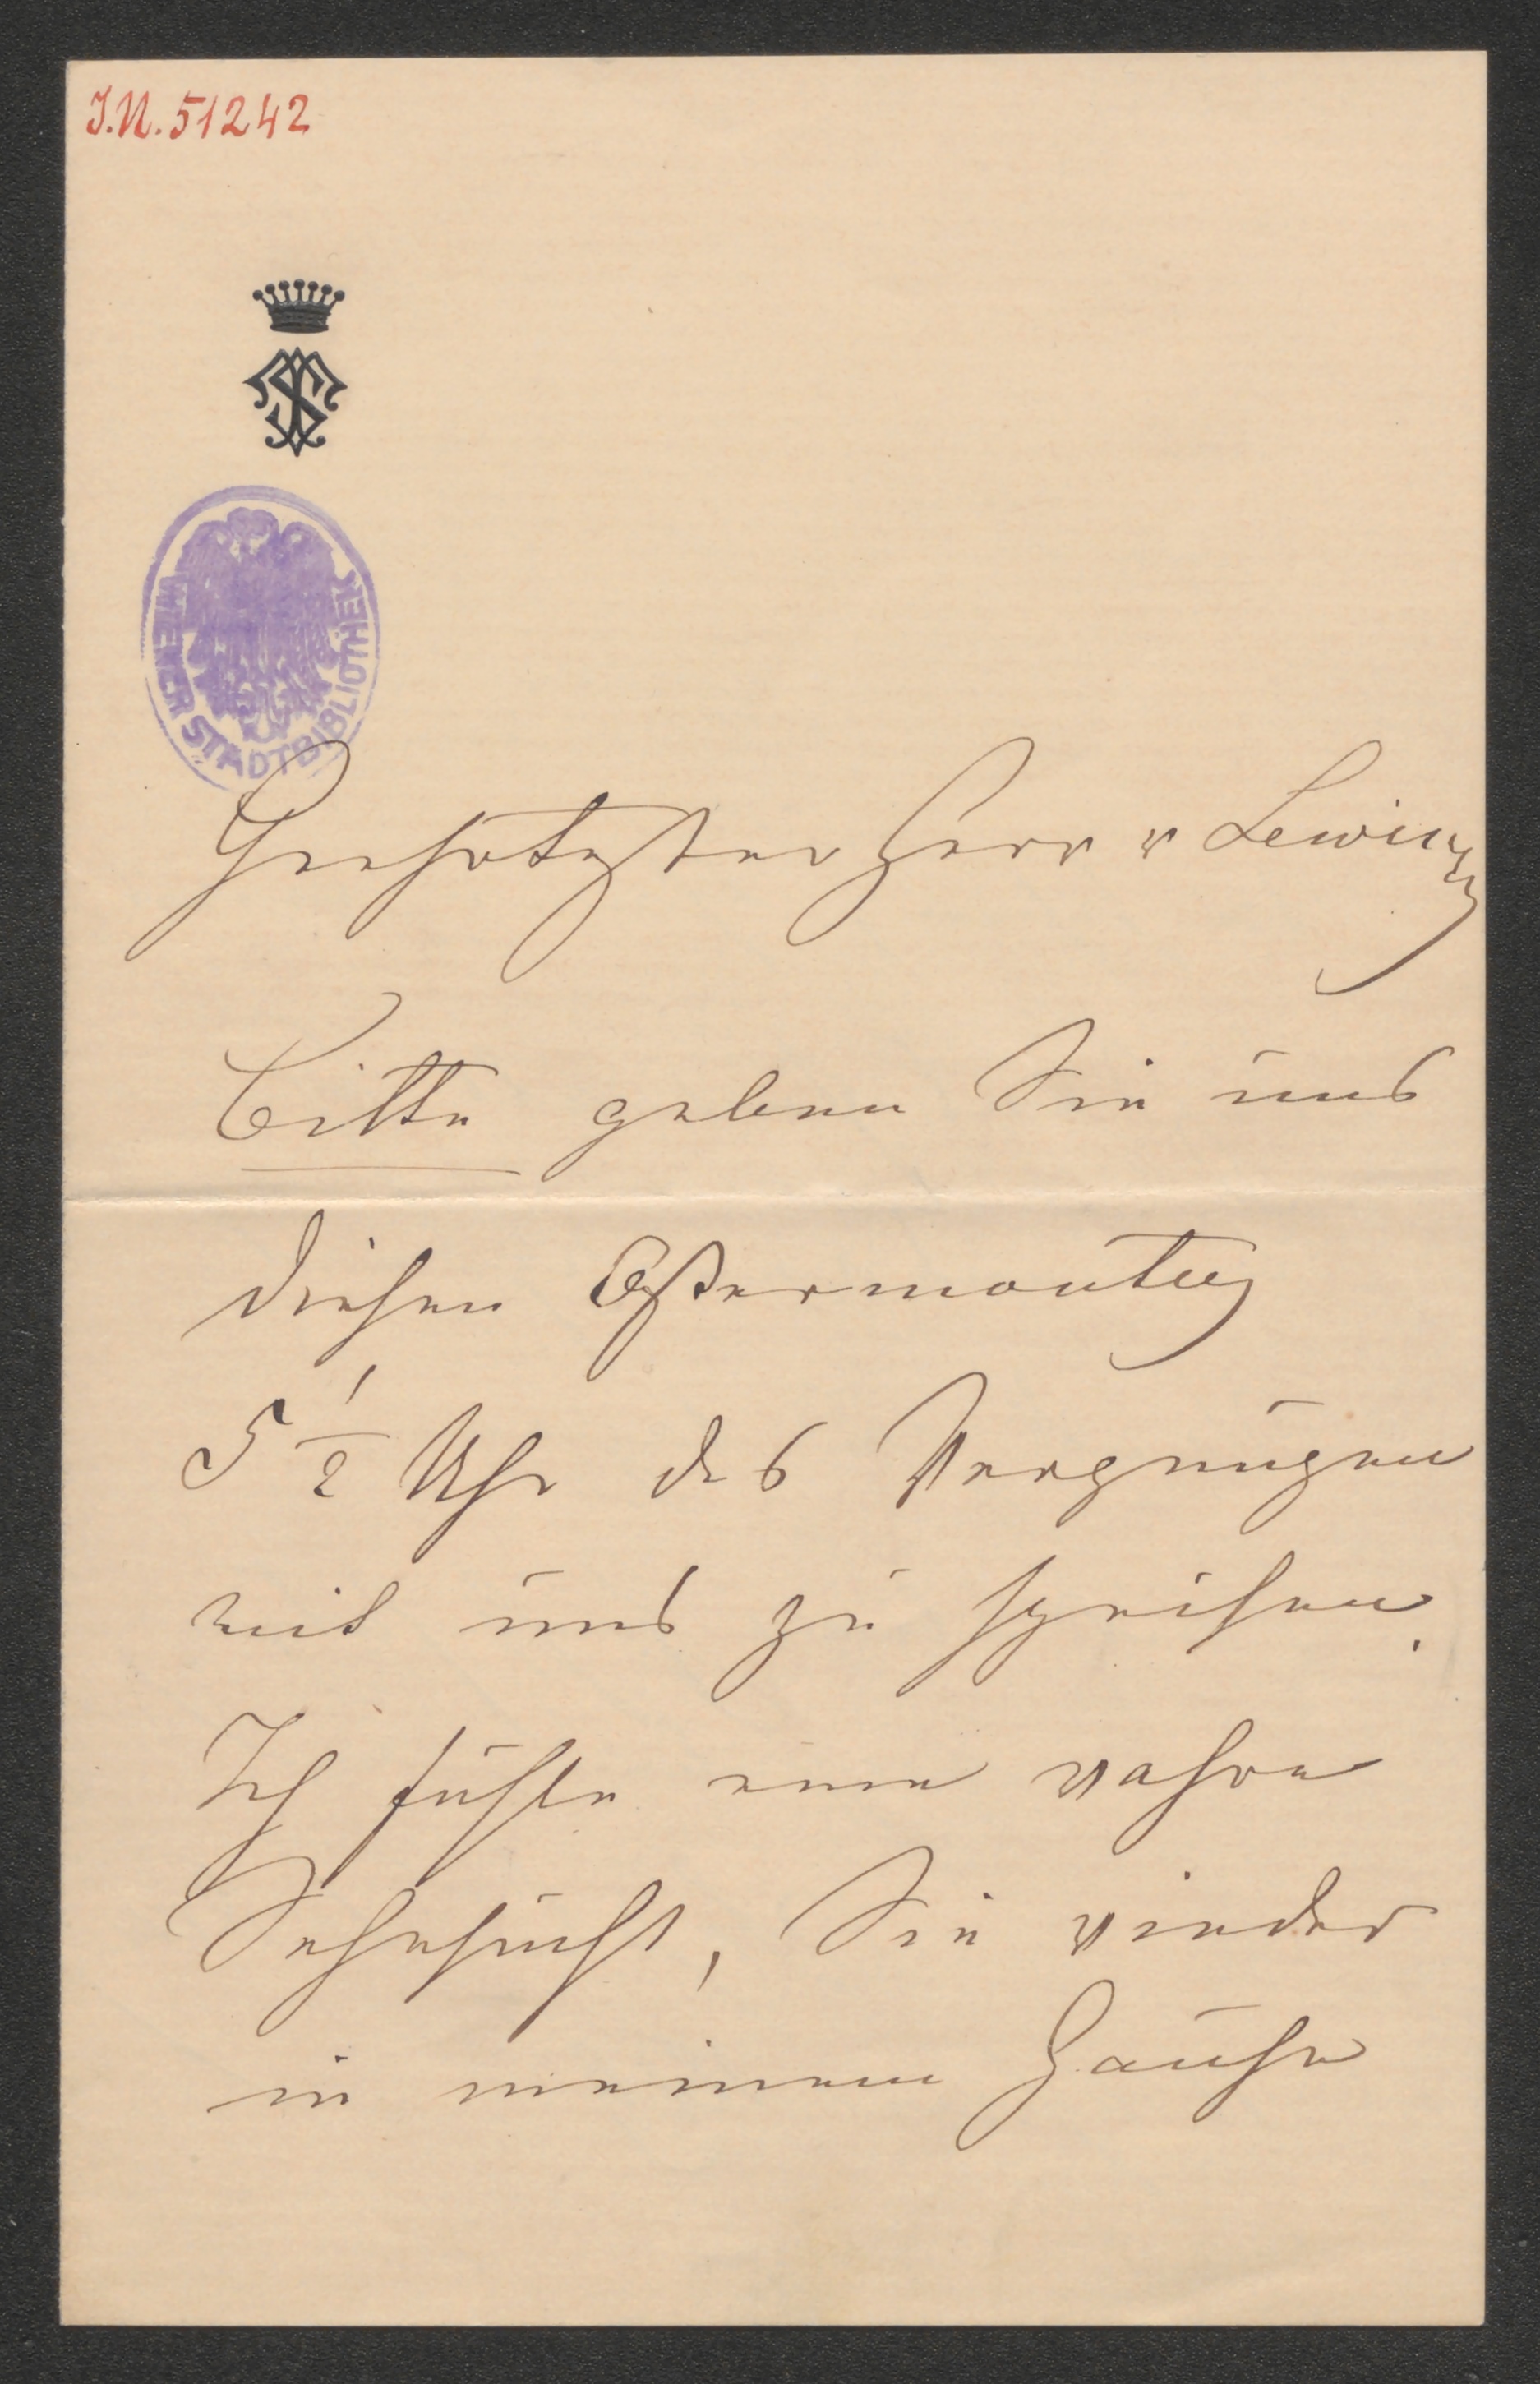 J.N. 51242
WIENER STADTBIBLIOTHEK
Geschätzter Herr v Lewinsky
Bitte geben Sie uns
diesen Ostermontag
5 1/2 Uhr das Vergnügen
mit uns zu speisen.
Ich fühle eine wahre
Sehnsucht, Sie wieder
in meinem Hause